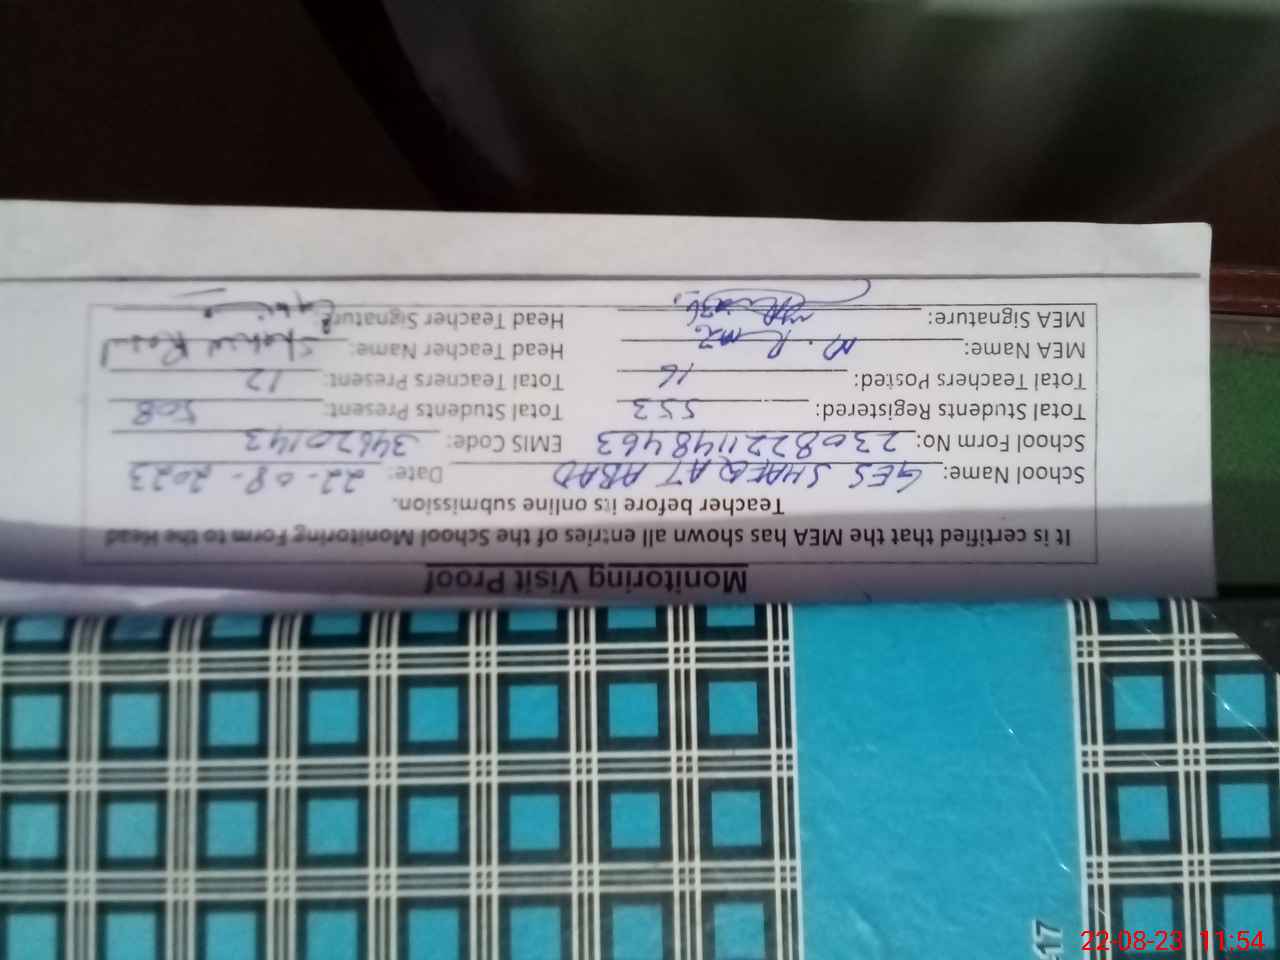 Monitoring Visit Proof
It is certified that the MEA has shown all entries of the School Monitoring Form to the Head
Teacher before its online submission.
School Name: GES SHAFQAT ABAD Date: 22-08-2023
School Form No: 2308221148463 EMIS Code: 34620143
Total Students Registered: 553 Total Students Present: 508
Total Teachers Posted: 16 Total Teachers Present: 12
MEA Name: M. Head Teacher Name:
MEA Signature: Head Teacher Signature:
17
22-08-23 11:54